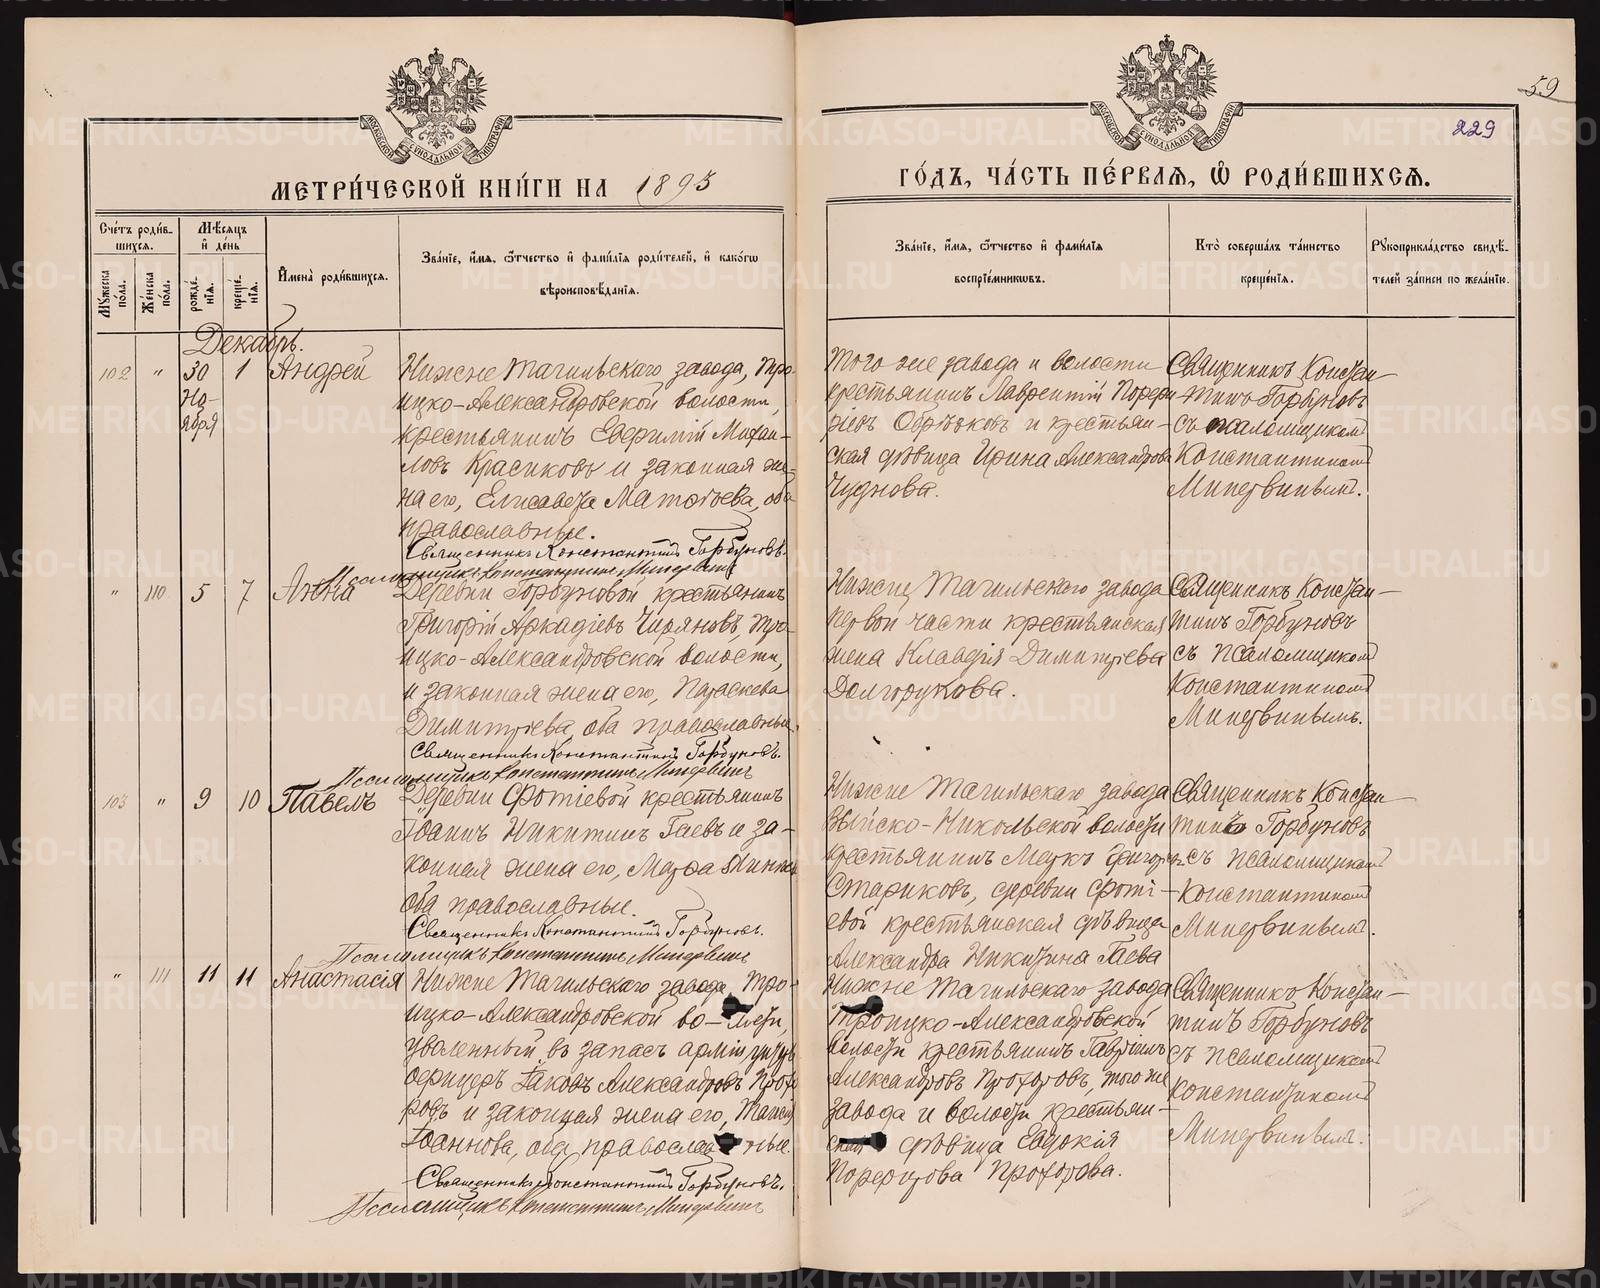 59
229
МЕТРИ́ЧЕСКОЙ КНИ́ГИ НА 1895
ГО́ДЪ, ЧА́СТЬ ПЕ́РВАЯ, Ѡ҆ РОДИ́ВШИХСЯ.
МОСКОВСКОЙ СѴНОДАЛЬНОЙ ТИПОГРАФІИ
МОСКОВСКОЙ СѴНОДАЛЬНОЙ ТИПОГРАФІИ
Сче́тъ роди́вшихся.
Мѣ́сяцъ и҆ де́нь
Му́жеска по́ла.
Же́нска по́ла.
рожде́нїя.
креще́нїя.
И҆мена̀ роди́вшихся.
Зва́нїе, и҆́мя, ѻ҆́тчество и҆ фами́лїя роди́телей, и҆ како́гѡ
вѣроисповѣ́данїя.
Зва́нїе, и҆́мя, ѻ҆́тчество и҆ фами́лїя
воспрїе́мникѡвъ.
Кто̀ соверша́лъ та́инство
креще́нїя.
Рукоприкла́дство свидѣ́телей за́писи по жела́нїю.
Декабрь.
102 " 30 Ноября 1 Андрей
Нижне Тагильскаго завода, Трои-
цко-Александровской волости,
крестьянинъ Евѳимій Михаи-
ловъ Красиковъ и законная же-
на его, Елисавета Матѳѣева, оба
православные.
Священникъ Константинъ Горбуновъ.
Псаломщикъ Константинъ Минервинъ
Того же завода и волости
крестьянинъ Лаврентій Порфи
ріевъ Обрѣзковъ и крестьян-
ская дѣвица Ирина Александрова
Чуднова.
Священникъ Констан-
тинъ Горбуновъ
съ псаломщикомъ
Константиномъ
Минервинымъ.
" 110 5 7 Анна
Деревни Горбуновой крестьянинъ
Григорій Аркадіевъ Чиряновъ, Трои-
цко-Александровской волости,
и законная жена его, Параскева
Димитріева, оба православные.
Священникъ Константинъ Горбуновъ.
Псаломщикъ Константинъ Минервинъ
Нижне Тагильскаго завода
первой части крестьянская
жена Клавдія Димитріева
Долгорукова.
Священникъ Констан-
тинъ Горбуновъ
съ псаломщикомъ
Константиномъ
Минервинымъ.
103 " 9 10 Павелъ
Деревни Фотіевой крестьянинъ
Іоаннъ Никитинъ Гаевъ и за-
конная жена его, Марѳа
оба православные.
Священникъ Константинъ Горбуновъ.
Псаломщикъ Константинъ Минервинъ
Нижне Тагильскаго завода
Выйско-Никольской волости
крестьянинъ Маркъ Григорьевъ
Стариковъ, деревни Фоті-
евой крестьянская дѣвица
Александра Никитина Гаева
Священникъ Констан-
тинъ Горбуновъ
съ псаломщикомъ
Константиномъ
Минервинымъ.
" 111 11 11 Анастасія
Нижне Тагильскаго завода, Трои-
цко-Александровской волости,
уволенный въ запасъ арміи унтеръ
офицеръ Іаковъ Александровъ Прохо
ровъ и законная жена его, Таисія
Іоаннова, оба православные.
Священникъ Константинъ Горбуновъ.
Псаломщикъ Константинъ Минервинъ
Нижне Тагильскаго завода
Троицко-Александровской
волости крестьянинъ Гавріилъ
Александровъ Прохоровъ, того же
завода и волости крестьян-
ская дѣвица Евдокія
Порфирова Прохорова.
Священникъ Констан-
тинъ Горбуновъ
съ псаломщикомъ
Константиномъ
Минервинымъ.
METRIKI.GASO-URAL.RU